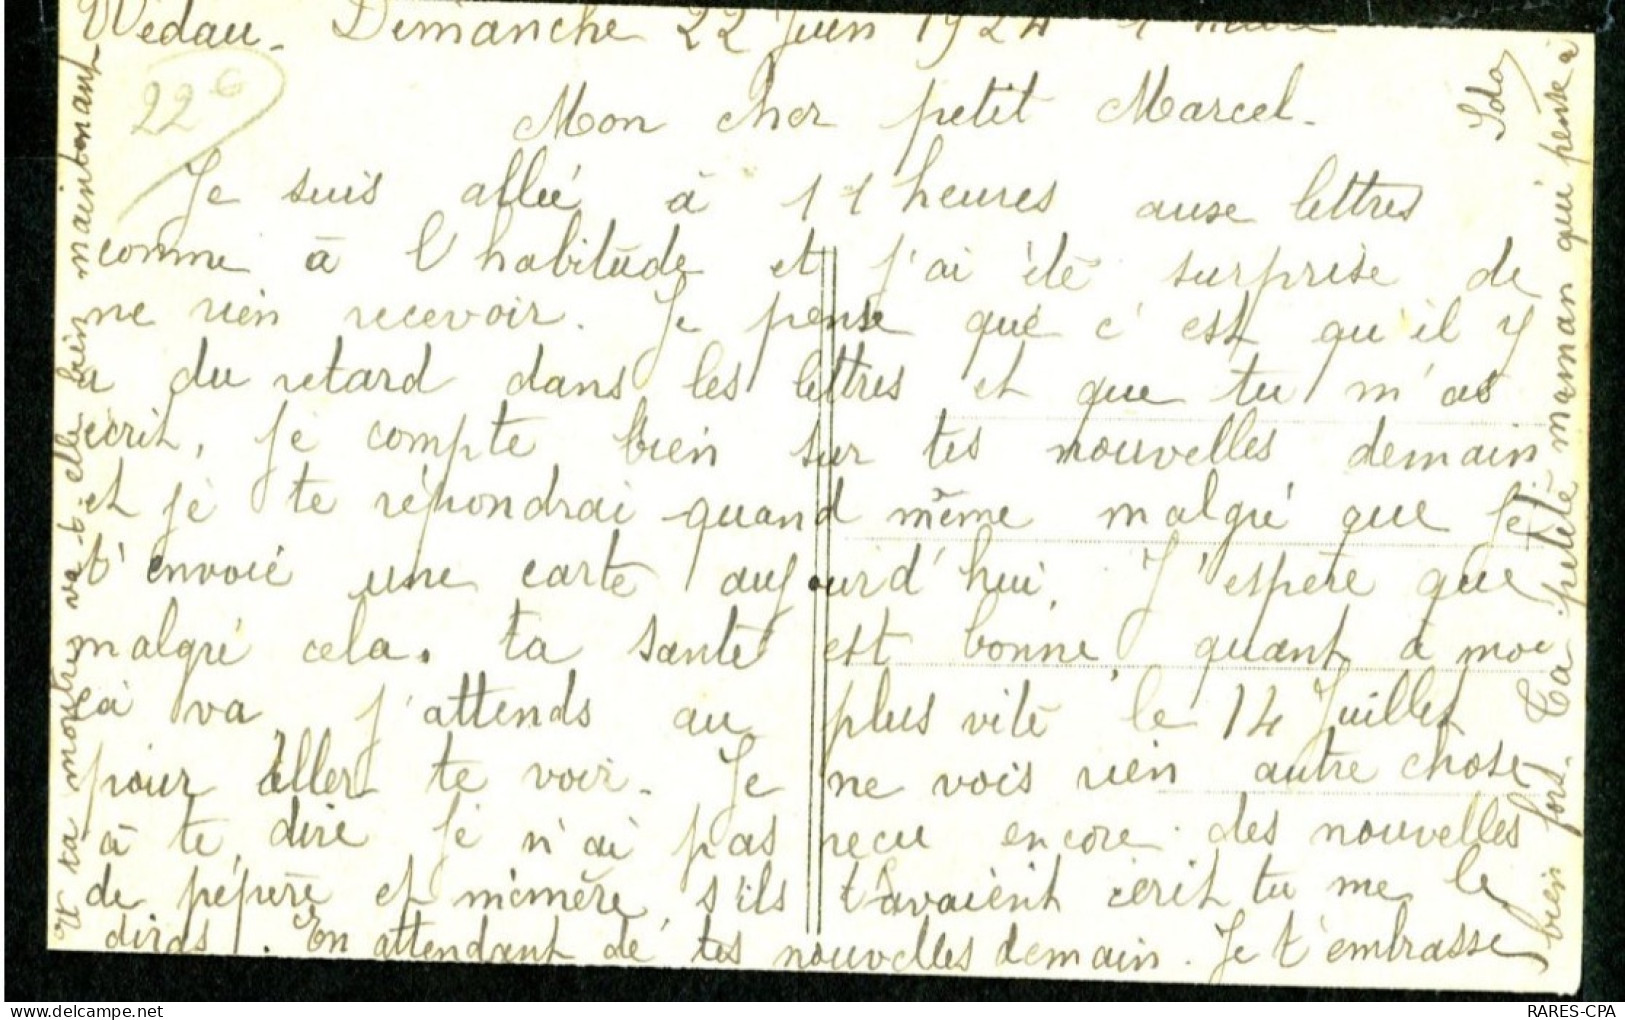 Wedau. Dimanche 22 Juin 1924
22e
Mon cher petit Marcel.
Je suis allée à 11 heures aux lettres
comme à l'habitude et j'ai été surprise de
ne rien recevoir. Je pense que c'est qu'il y
a du retard dans les lettres et que tu m'as
écrit, je compte bien sur tes nouvelles demain
et je te répondrai quand même malgré que je
t'envoie une carte aujourd'hui. J'espère que
malgré cela. ta santé est bonne, quant à moi
çà va j'attends au plus vite le 14 Juillet
pour aller te voir. Je ne vois rien autre chose
à te dire je n'ai pas reçu encore des nouvelles
de pépère et mémère, s'ils t'avaient écrit tu me le
diras. En attendant de tes nouvelles demain. Je t'embrasse
bien fort. Ta petite maman qui pense à
Et ta montre va-t-elle bien maintenant
RARES-CPA